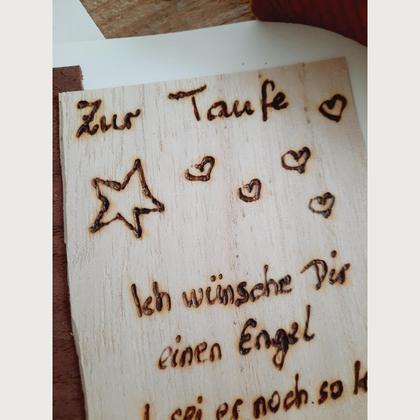 Zur Taufe
Ich wünsche Dir
einen Engel
sei er noch so